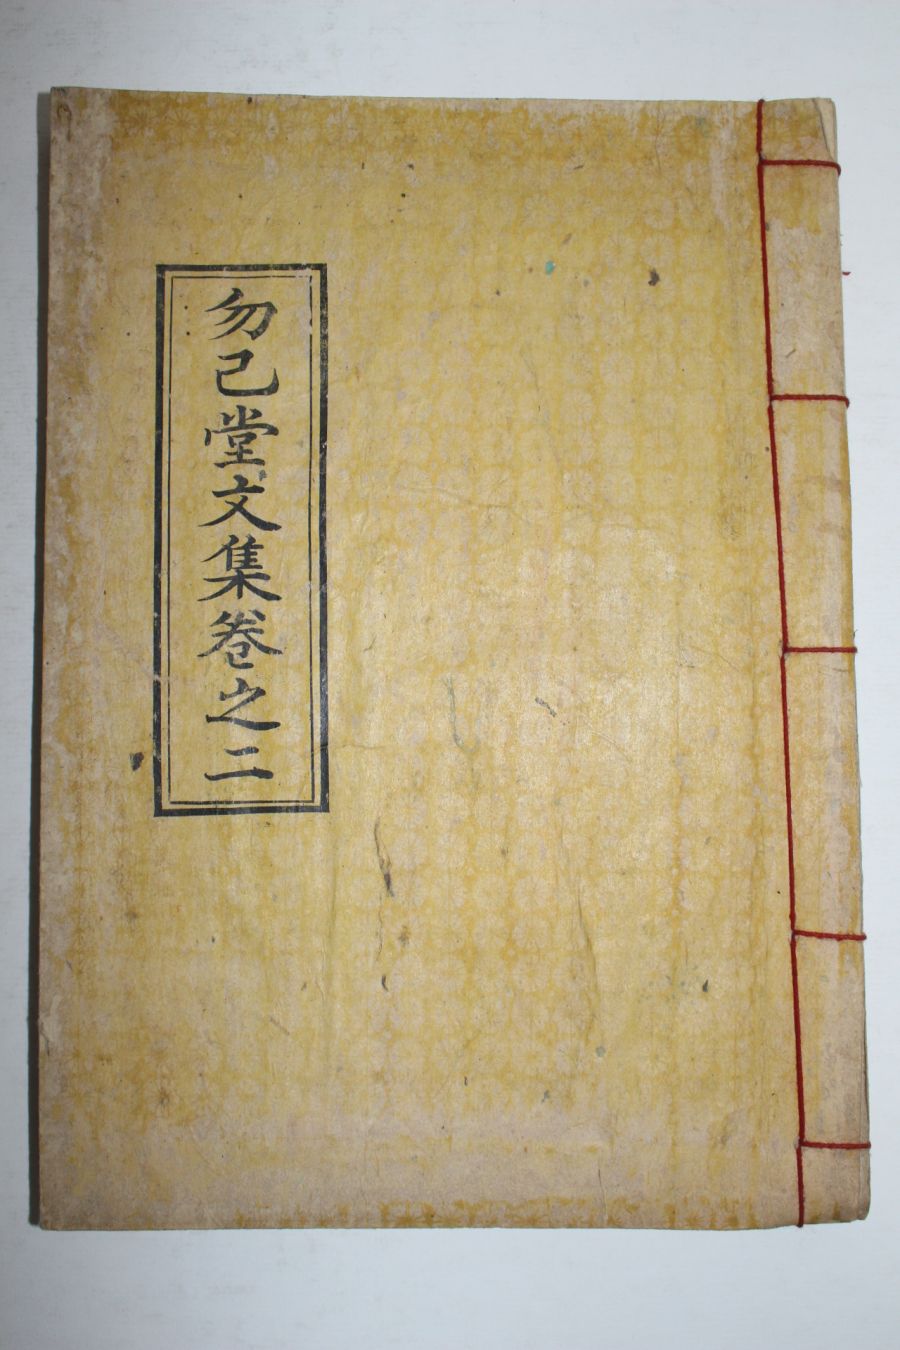 勿己堂文集卷之二